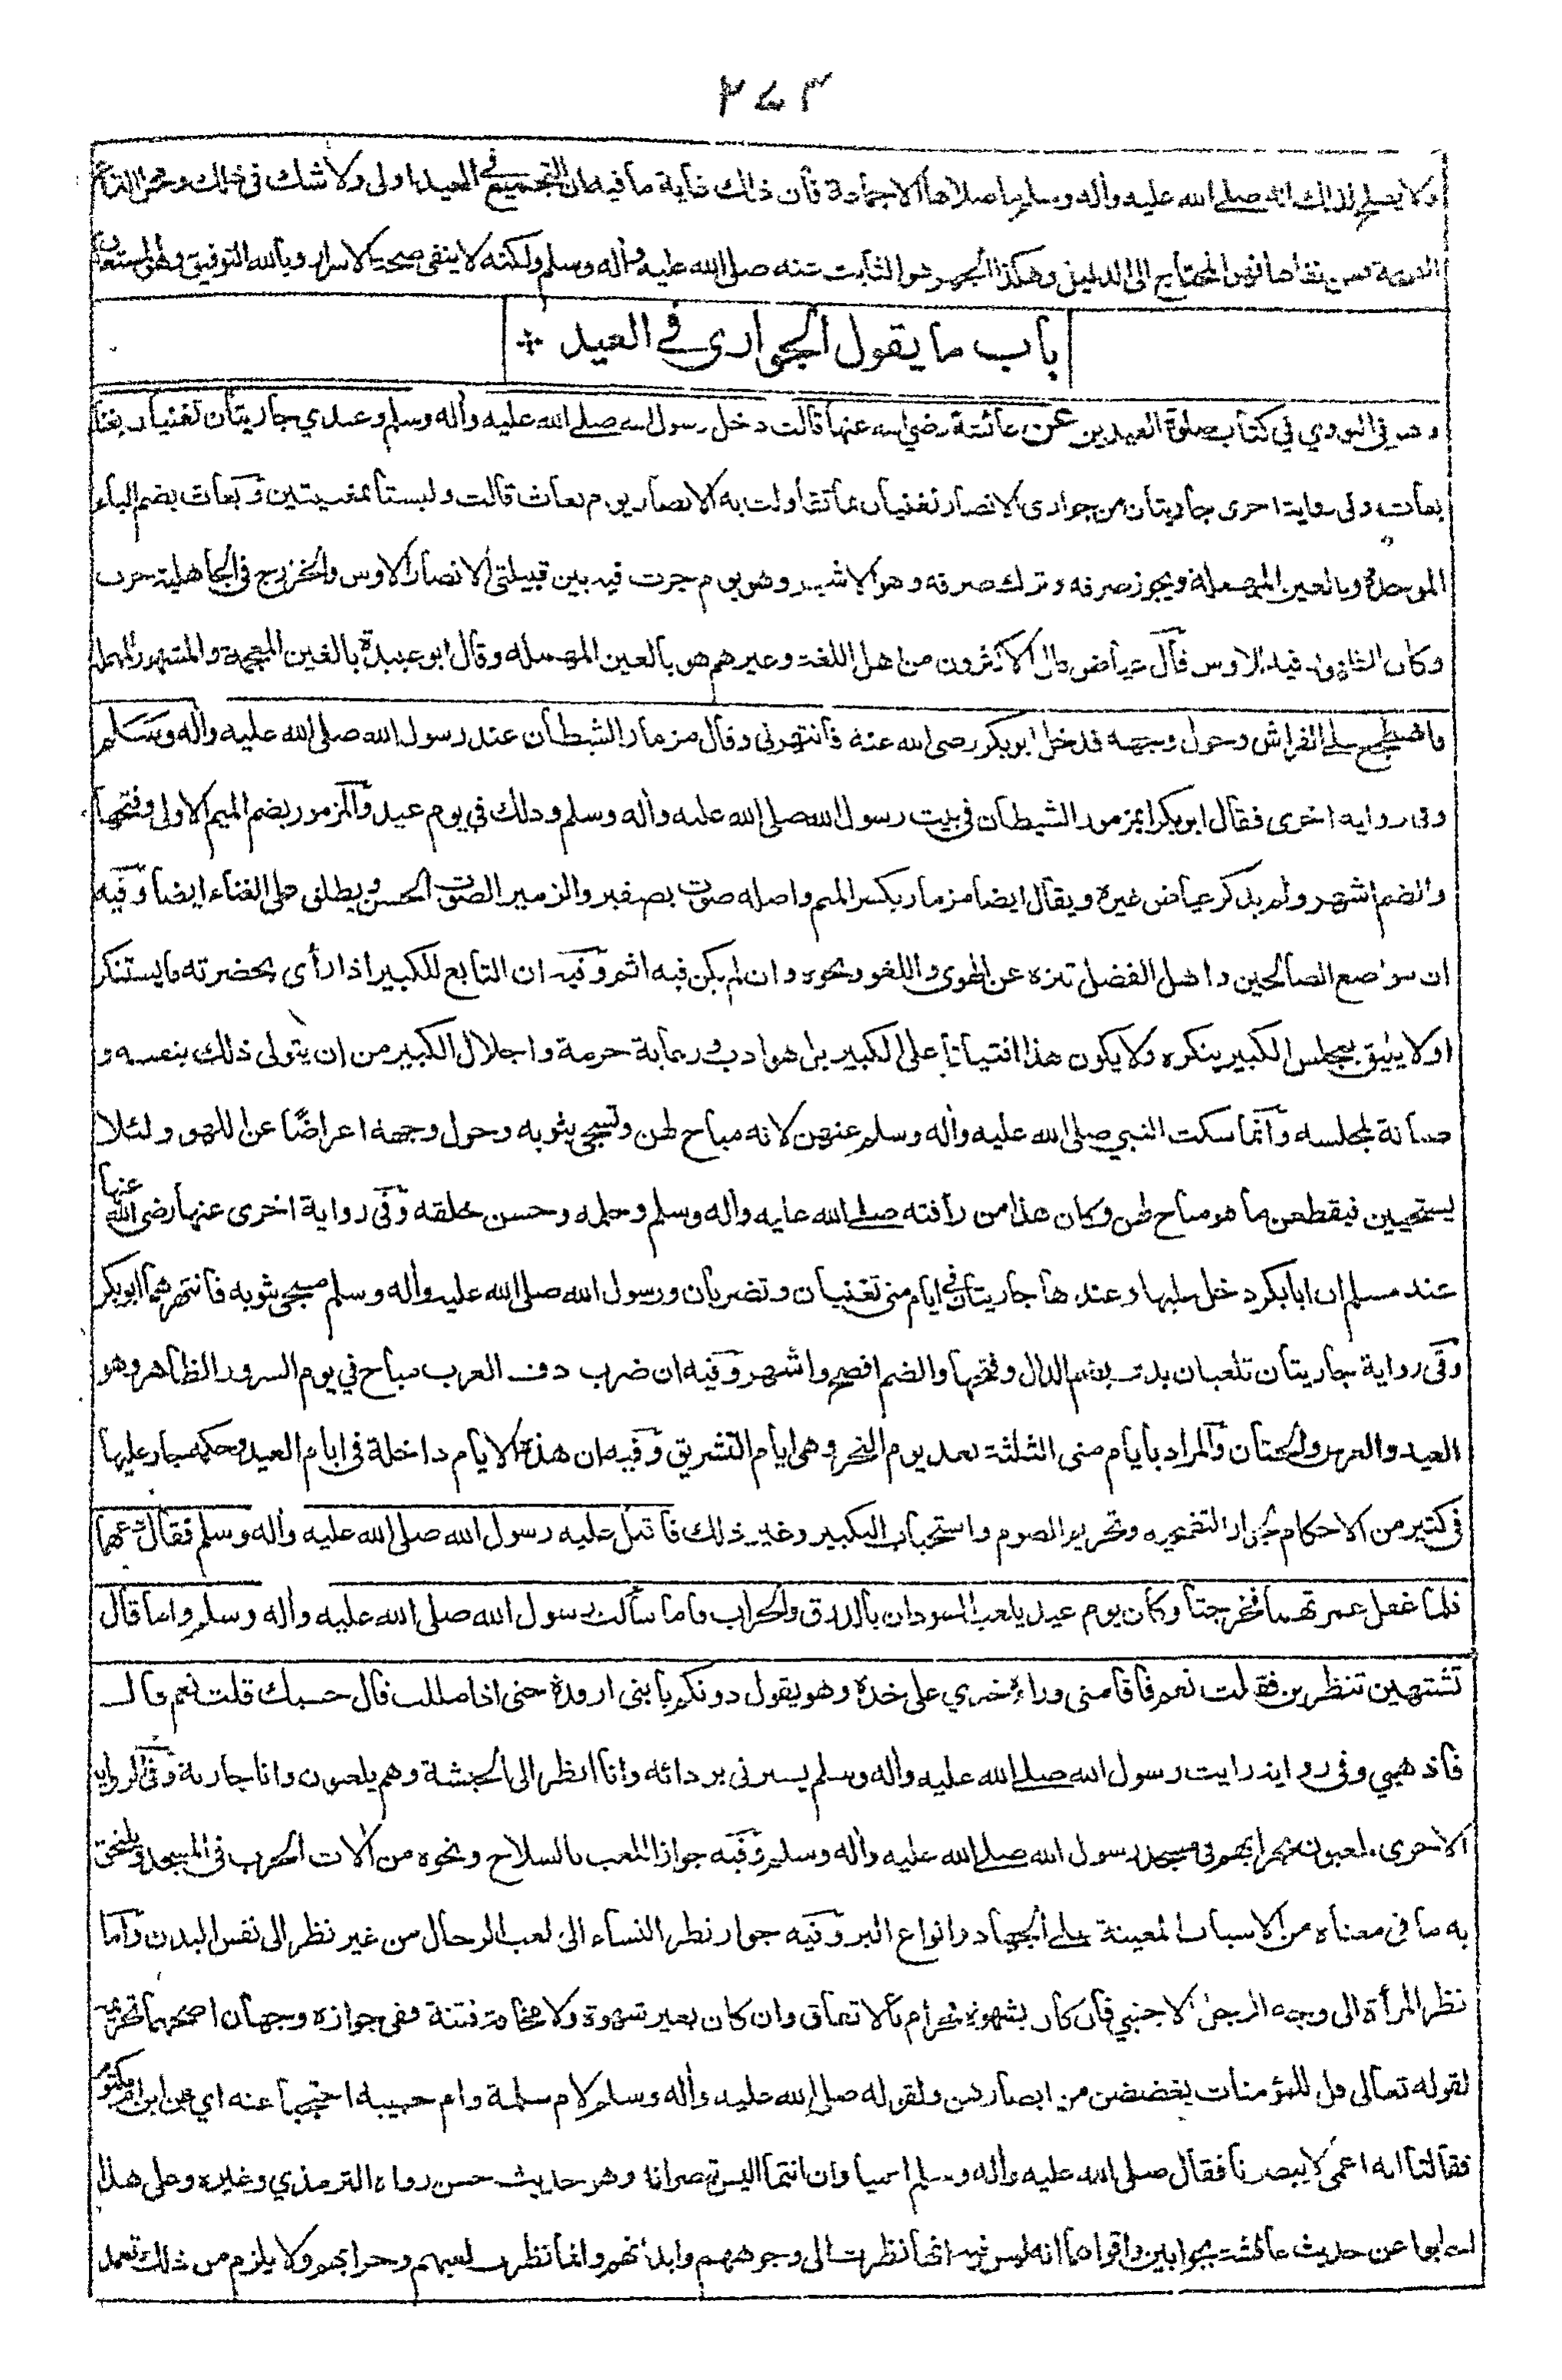 ٢٧٣
ولا يصلح لذلك انه صلى الله عليه واله وسلم ما صلاها الا جماعة فان ذلك غاية ما فيه ان التجميع في العيد اولى ولا شك في ذلك
نفاها فهو المحتاج الى الدليل وهكذا الجهر هو الثابت عنه صلى الله عليه واله وسلم ولكنه لا ينفى صحة الاسرار وبالله التوفيق وهو المستعان
باب ما يقول الجواري في العيد
وهو في النووي في كتاب صلوة العيدين عن عائشة رضي الله عنها قالت دخل رسول الله صلى الله عليه واله وسلم وعندي جاريتان تغنيان بغناء
بعاث وفى رواية اخرى جاريتان من جوارى الانصار تغنيان بما تقاولت به الانصار يوم بعاث قالت وليستا بمغنيتين وبعاث بضم الباء
الموحدة وبالعين المهملة ويجوز صرفه وترك صرفه وهو الاشهر وهو يوم جرت فيه بين قبيلتي الانصار الاوس والخزرج في الجاهلية حرب
وكان الظهور فيه للاوس قال عياض قال الاكثرون من اهل اللغة وغيرهم هو بالعين المهملة وقال ابو عبيدة بالغين المعجمة والمشهور المهملة
فاضطجع على الفراش وحول وجهه فدخل ابو بكر رضى الله عنه فانتهرنى وقال مزمار الشيطان عند رسول الله صلى الله عليه واله وسلم
وفى رواية اخرى فقال ابو بكر ابمزمور الشيطان في بيت رسول الله صلى الله عليه واله وسلم وذلك في يوم عيد والمزمور بضم الميم الاولى وفتحها
والضم اشهر ولم يذكر عياض غيره ويقال ايضا مزمار بكسر الميم واصله صوت بصفير والزمير الصوت الحسن ويطلق على الغناء ايضا وفيه
ان مواضع الصالحين واهل الفضل تنزه عن الهوى واللغو ونحوه وان لم يكن فيه اثم وفيه ان التابع للكبير اذا رأى بحضرته ما يستنكر
اولا يليق بمجلس الكبير ينكره ولا يكون هذا افتياتا على الكبير بل هو ادب ورعاية حرمة واجلال الكبير من ان يتولى ذلك بنفسه و
صيانة لمجلسه وانما سكت النبي صلى الله عليه واله وسلم عنهن لانه مباح لهن وتسجى بثوبه وحول وجهه اعراضا عن اللهو ولئلا
يستحيين فيقطعن ما هو مباح لهن وكان هذا من رأفته صلى الله عليه واله وسلم وحلمه وحسن خلقه وفى رواية اخرى عنها رضى الله عنها
عند مسلم ان ابا بكر دخل عليها وعندها جاريتان في ايام منى تغنيان وتضربان ورسول الله صلى الله عليه واله وسلم مسجى بثوبه فانتهرهما ابو بكر
وفى رواية جاريتان تلعبان بدف بضم الدال وفتحها والضم افصح واشهر وفيه ان ضرب دف العرب مباح في يوم السرور الظاهر وهو
العيد والعرس والختان والمراد بايام منى الثلثة بعد يوم النحر وهى ايام التشريق وفيه ان هذه الايام داخلة فى ايام العيد وحكمه جار عليها
فى كثير من الاحكام لجواز التضحية وتحريم الصوم واستحباب التكبير وغير ذلك فاقبل عليه رسول الله صلى الله عليه واله وسلم فقال دعهما
فلما غفل غمزتهما فخرجتا وكان يوم عيد يلعب السودان بالدرق والحراب فاما سألت رسول الله صلى الله عليه واله وسلم واما قال
تشتهين تنظرين فقلت نعم فاقامنى وراءه خدي على خده وهو يقول دونكم يا بنى ارفدة حتى اذا مللت قال حسبك قلت نعم قال
فاذهبي وفى رواية رايت رسول الله صلى الله عليه واله وسلم يسترنى بردائه وانا انظر الى الحبشة وهم يلعبون وانا جارية وفى الرواية
الاخرى يلعبون بحرابهم فى مسجد رسول الله صلى الله عليه واله وسلم وفيه جواز اللعب بالسلاح ونحوه من آلات الحرب فى المسجد ويلتحق
به ما فى معناه من الاسباب المعينة على الجهاد وانواع البر وفيه جواز نظر النساء الى لعب الرجال من غير نظر الى نفس البدن واما
نظر المرأة الى وجه الرجل الاجنبي فان كان بشهوة فحرام بالاتفاق وان كان بغير شهوة ولا مخافة فتنة ففى جوازه وجهان اصحهما تحريمه
لقوله تعالى قل للمؤمنات يغضضن من ابصارهن ولقوله صلى الله عليه واله وسلم لام سلمة وام حبيبة احتجبا عنه اي عن ابن ام مكتوم
فقالتا انه اعمى لا يبصرنا فقال صلى الله عليه واله وسلم اعمياوان انتما اليس تبصرانه وهو حديث حسن رواه الترمذي وغيره وعلى هذا
اجابوا عن حديث عائشة بجوابين واقواهما انه ليس فيه انها نظرت الى وجوههم وابدانهم وانما نظرت لعبهم وحرابهم ولا يلزم من ذلك تعمد